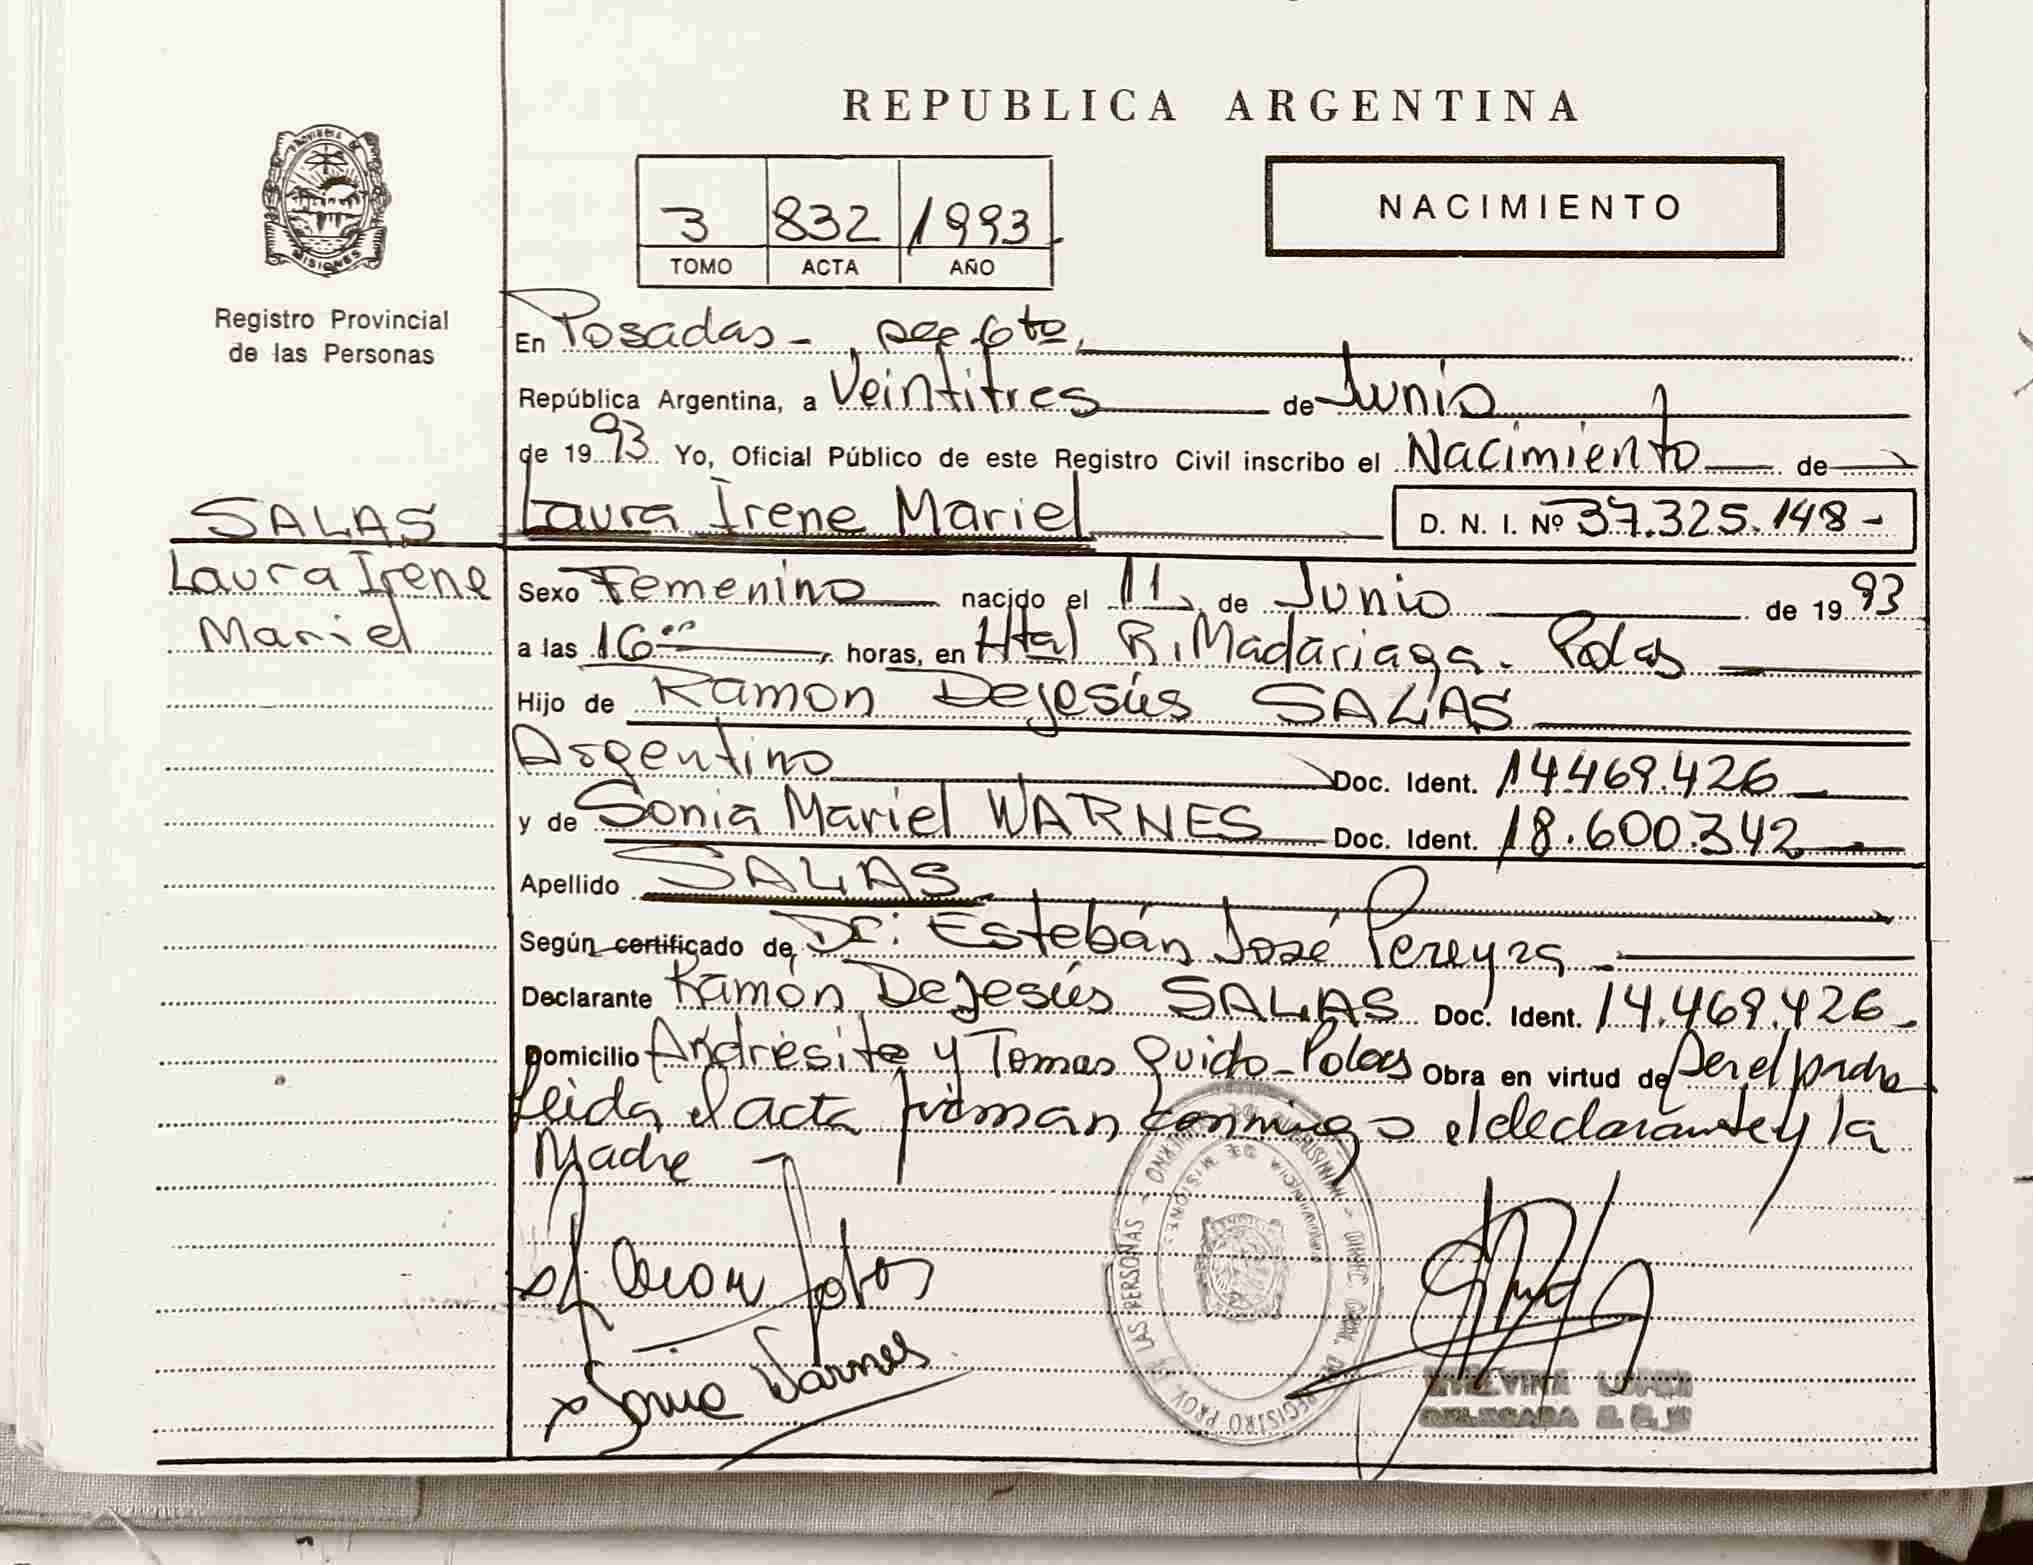 REPUBLICA ARGENTINA
PROVINCIA DE
MISIONES
Registro Provincial
de las Personas
3 832 1993
TOMO ACTA AÑO
NACIMIENTO
En Posadas -
República Argentina, a Veintitres de Junio
de 1993 Yo, Oficial Público de este Registro Civil inscribo el Nacimiento de
SALAS
Laura Irene
Mariel
Laura Irene Mariel D. N. I. Nº 37.325.148-
Sexo Femenino nacido el 11 de Junio de 1993
a las 16 horas, en Htal R. Madariaga. Pdas
Hijo de Ramon DeJesús SALAS
Argentino Doc. Ident. 14469.426
y de Sonia Mariel WARNES Doc. Ident. 18.600.342
Apellido SALAS
Según certificado de Dr: Estebán José Pereyra
Declarante Ramon DeJesús SALAS Doc. Ident. 14.469.426.
Domicilio Andresito y Tomas Guido - Pdas Obra en virtud de Ser el padre
leida el acta firman conmigo el declarante y la
Madre
Sonia Warnes
REGISTRO PROV. DE LAS PERSONAS
PROVINCIA DE MISIONES
LOPEZ
DELEGADA